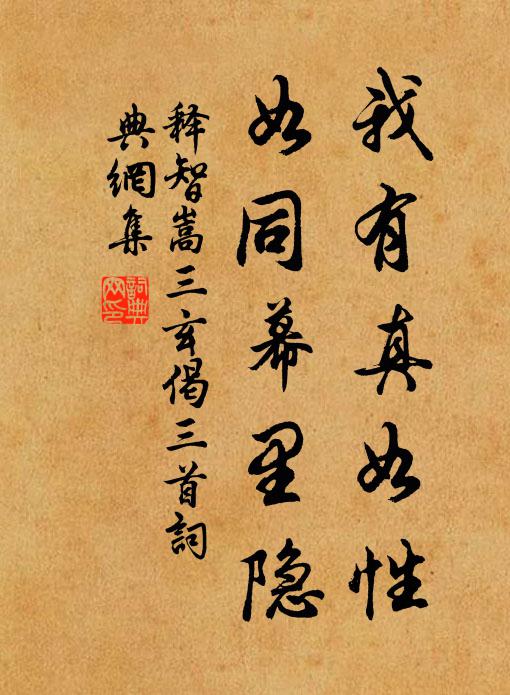 我有真如性
如同幕里隐
释智嵩三玄偈三首詞
典網集
詞典
网印